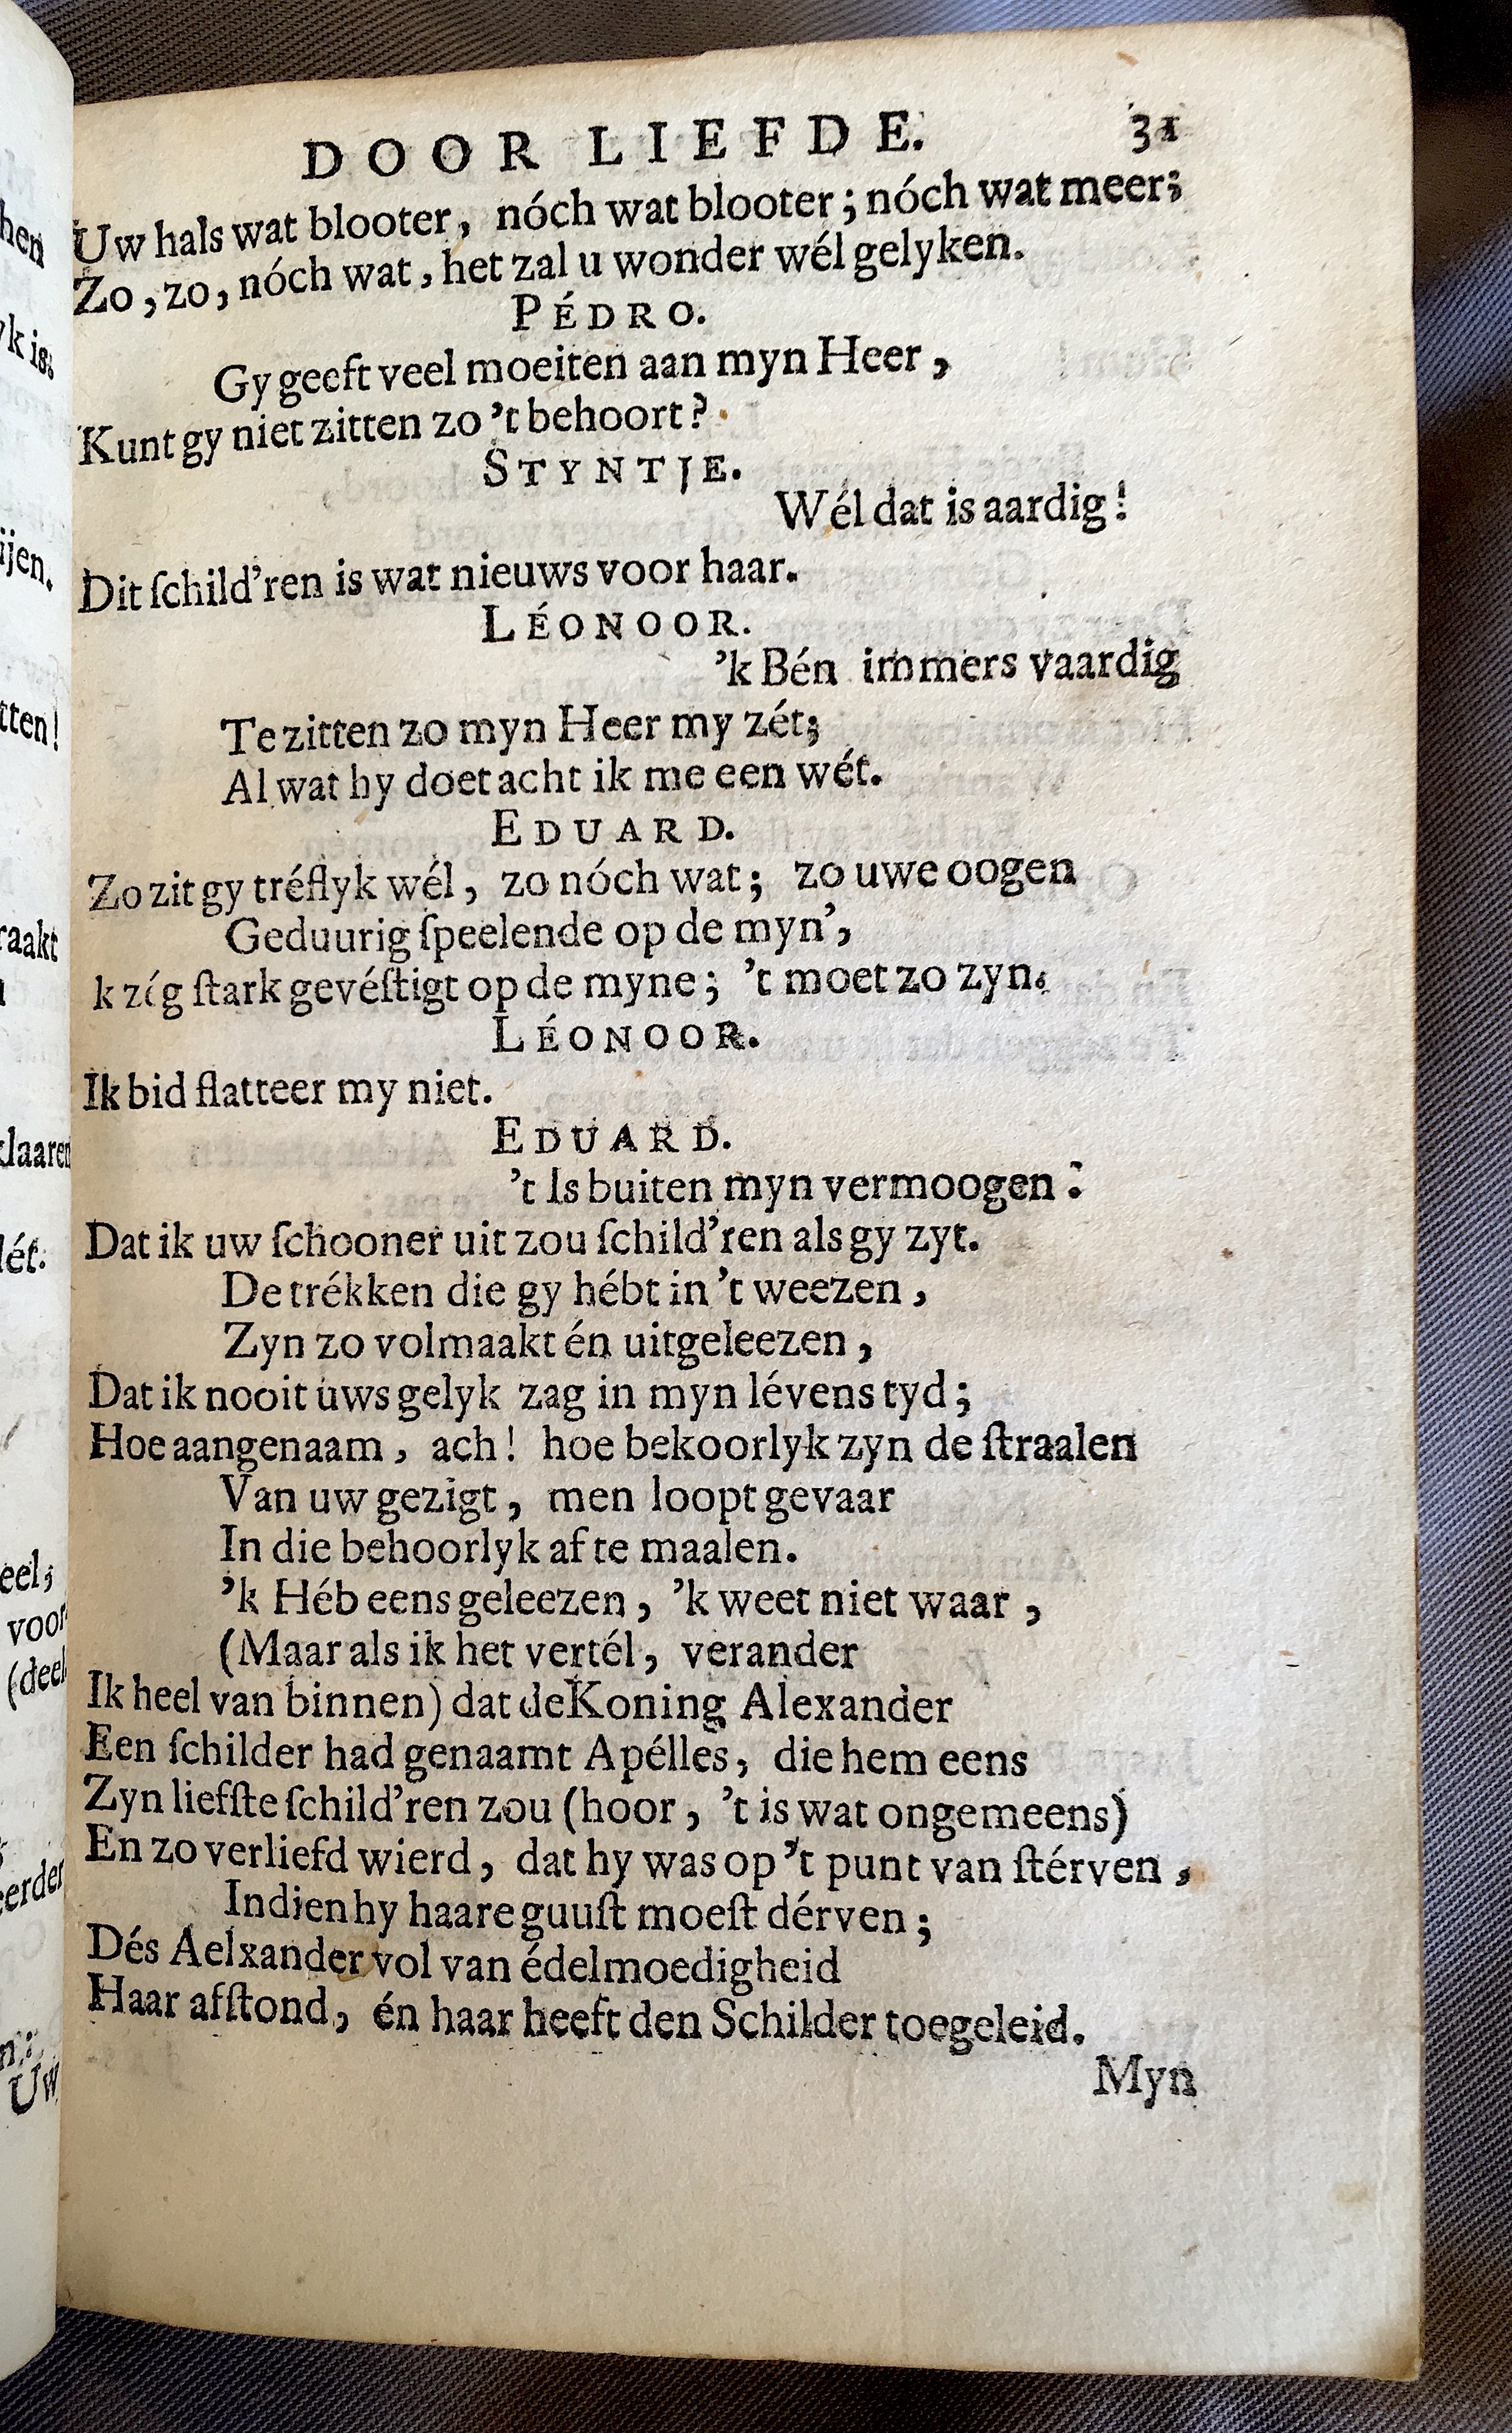 DOOR LIEFDE. 31
Uw hals wat blooter, nóch wat blooter; nóch wat meer;
Zo, zo, nóch wat, het zal u wonder wél gelyken.
PÉDRO.
Gy geeft veel moeiten aan myn Heer,
Kunt gy niet zitten zo 't behoort?
STYNTJE.
Wél dat is aardig!
Dit ſchild'ren is wat nieuws voor haar.
LÉONOOR.
'k Bén immers vaardig
Te zitten zo myn Heer my zét;
Al wat hy doet acht ik me een wét.
EDUARD.
Zo zit gy tréflyk wél, zo nóch wat; zo uwe oogen
Geduurig ſpeelende op de myn',
k zég ſtark gevéſtigt op de myne; 't moet zo zyn.
LÉONOOR.
Ik bid flatteer my niet.
EDUARD.
't Is buiten myn vermoogen:
Dat ik uw ſchooner uit zou ſchild'ren als gy zyt.
De trékken die gy hébt in 't weezen,
Zyn zo volmaakt én uitgeleezen,
Dat ik nooit uws gelyk zag in myn lévens tyd;
Hoe aangenaam, ach! hoe bekoorlyk zyn de ſtraalen
Van uw gezigt, men loopt gevaar
In die behoorlyk af te maalen.
'k Héb eens geleezen, 'k weet niet waar,
(Maar als ik het vertél, verander
Ik heel van binnen) dat de Koning Alexander
Een ſchilder had genaamt Apélles, die hem eens
Zyn liefſte ſchild'ren zou (hoor, 't is wat ongemeens)
En zo verliefd wierd, dat hy was op 't punt van ſtérven,
Indien hy haare guuſt moeſt dérven;
Dés Aelxander vol van édelmoedigheid
Haar afſtond, én haar heeft den Schilder toegeleid.
Myn